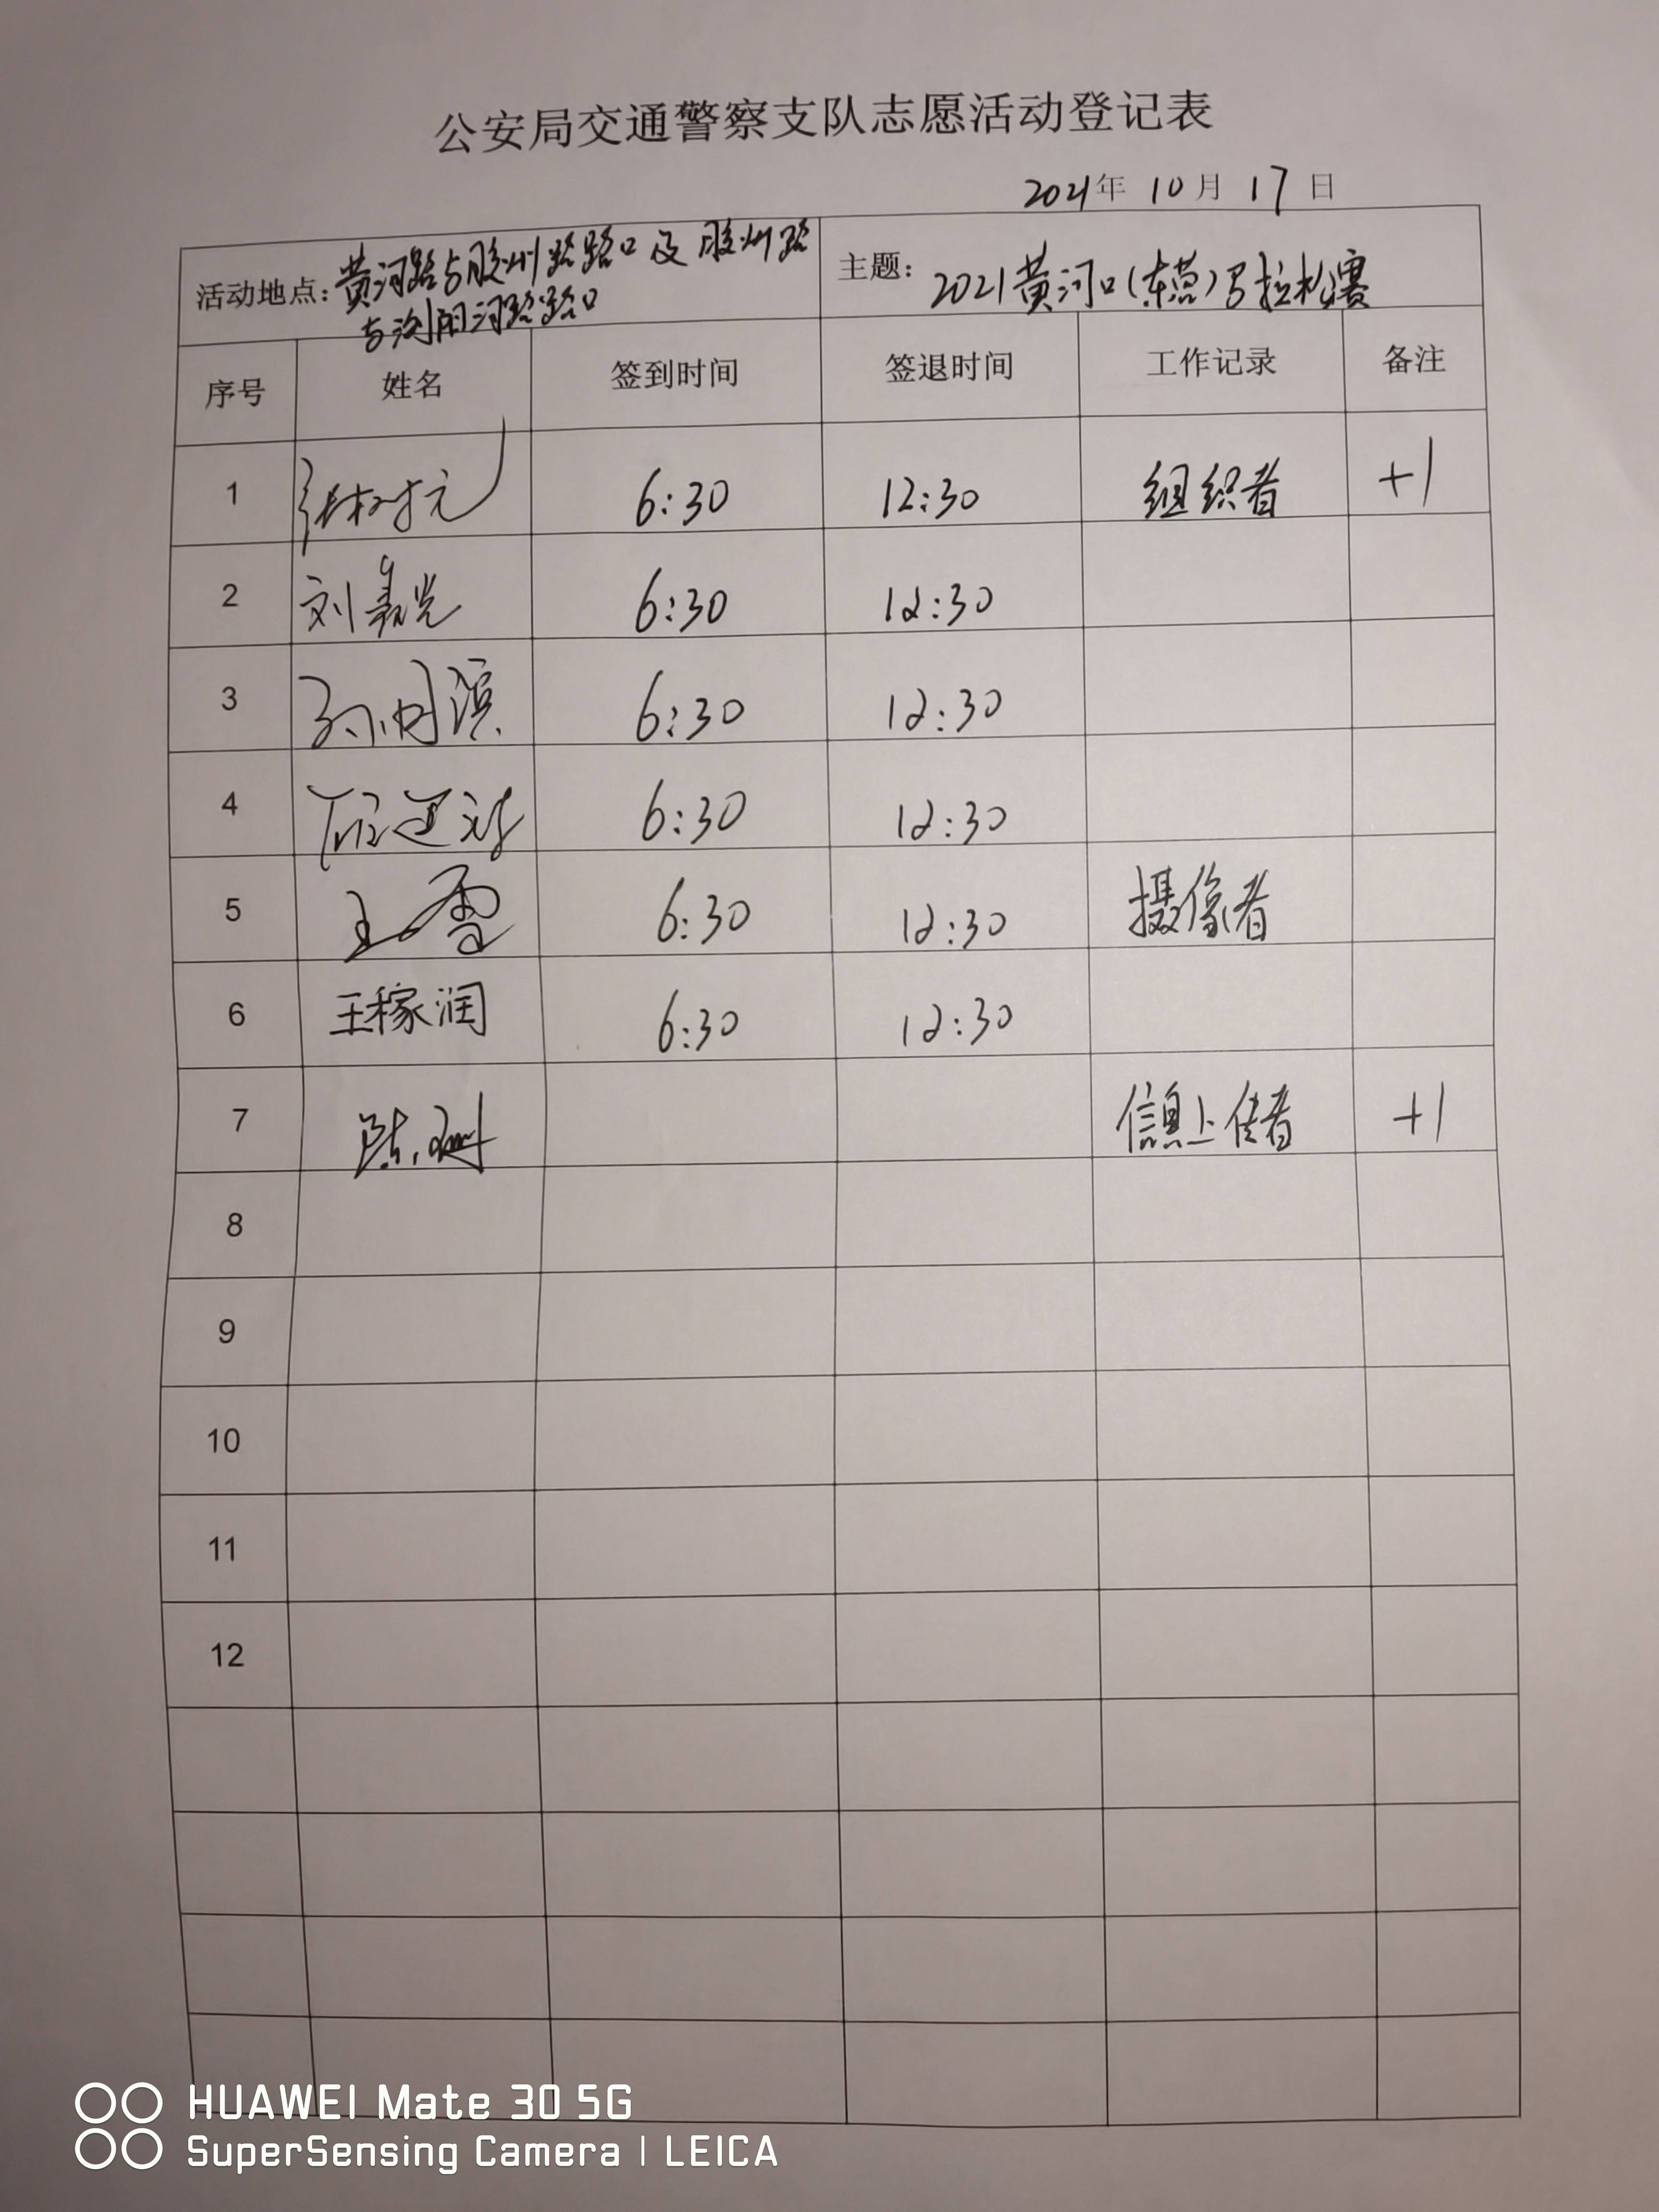 公安局交通警察支队志愿活动登记表
2021年 10月 17日
活动地点：黄河路与胶州路路口及胶州路
与浏阳河路路口
主题：2021黄河口(东营)马拉松赛
序号 姓名 签到时间 签退时间 工作记录 备注
1 6:30 12:30 组织者 +1
2 刘 光 6:30 12:30
3 孙 滨 6:30 12:30
4 6:30 12:30
5 王雪 6:30 12:30 摄像者
6 王稼润 6:30 12:30
7 陈 信息上传者 +1
8
9
10
11
12
HUAWEI Mate 30 5G
SuperSensing Camera | LEICA